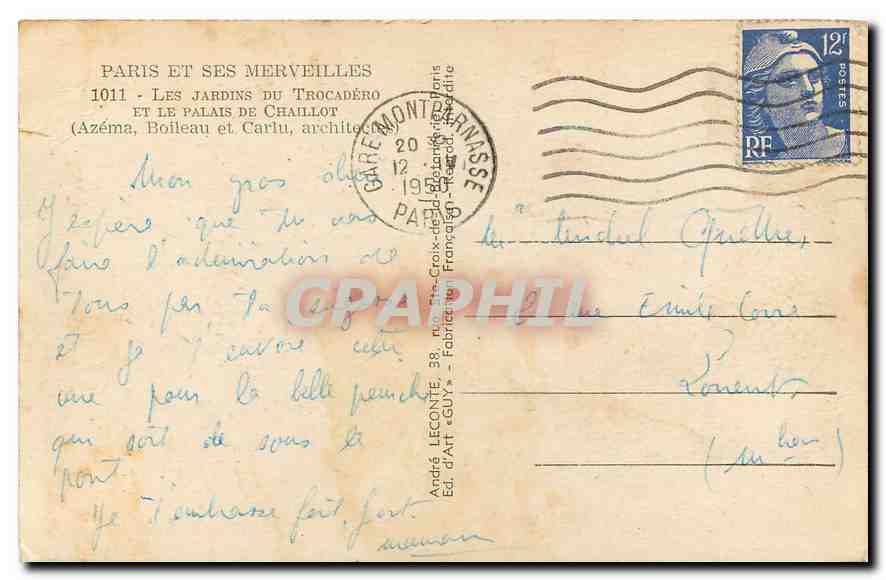 PARIS ET SES MERVEILLES
1011 - LES JARDINS DU TROCADÉRO
ET LE PALAIS DE CHAILLOT
(Azéma, Boileau et Carlu, architectes)
Mon gros
J'espère que tu vas
faire l'admiration de
Tous par Ta
et je T'envoie cette
vue pour la belle
qui sort de sous le
pont.
Je T'embrasse fort, fort.
maman
GARE MONTPARNASSE
20
12
1950
PARIS
André LECONTE, 38, rue Ste-Croix-de-la-Bretonnerie, Paris
Ed. d'Art «GUY» - Fabrication Française - Reprod. interdite
12f
POSTES
RF
rue Emile
Lorient
CPAPHIL